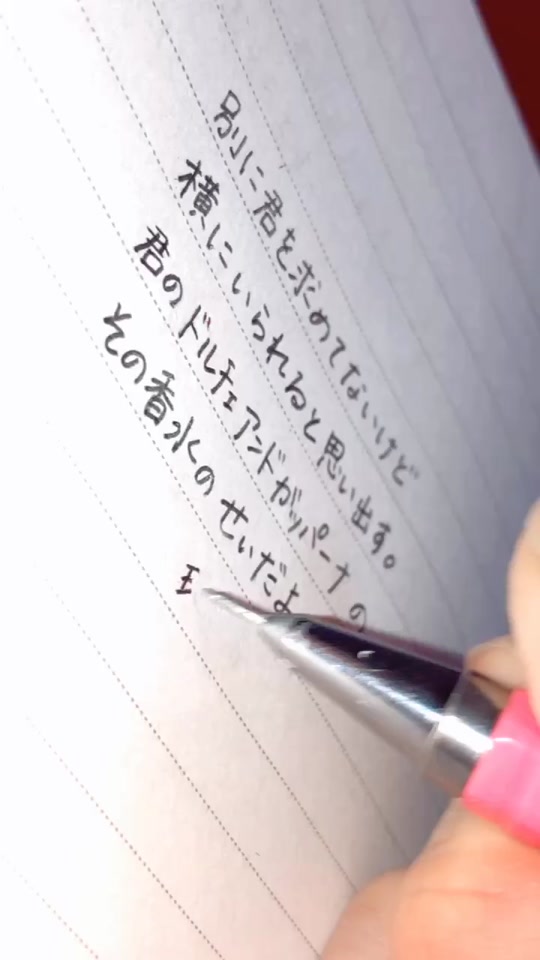 別に君を求めてないけど
横にいられると思い出す。
君のドルチェアンドガッバーナの
その香水のせいだよ